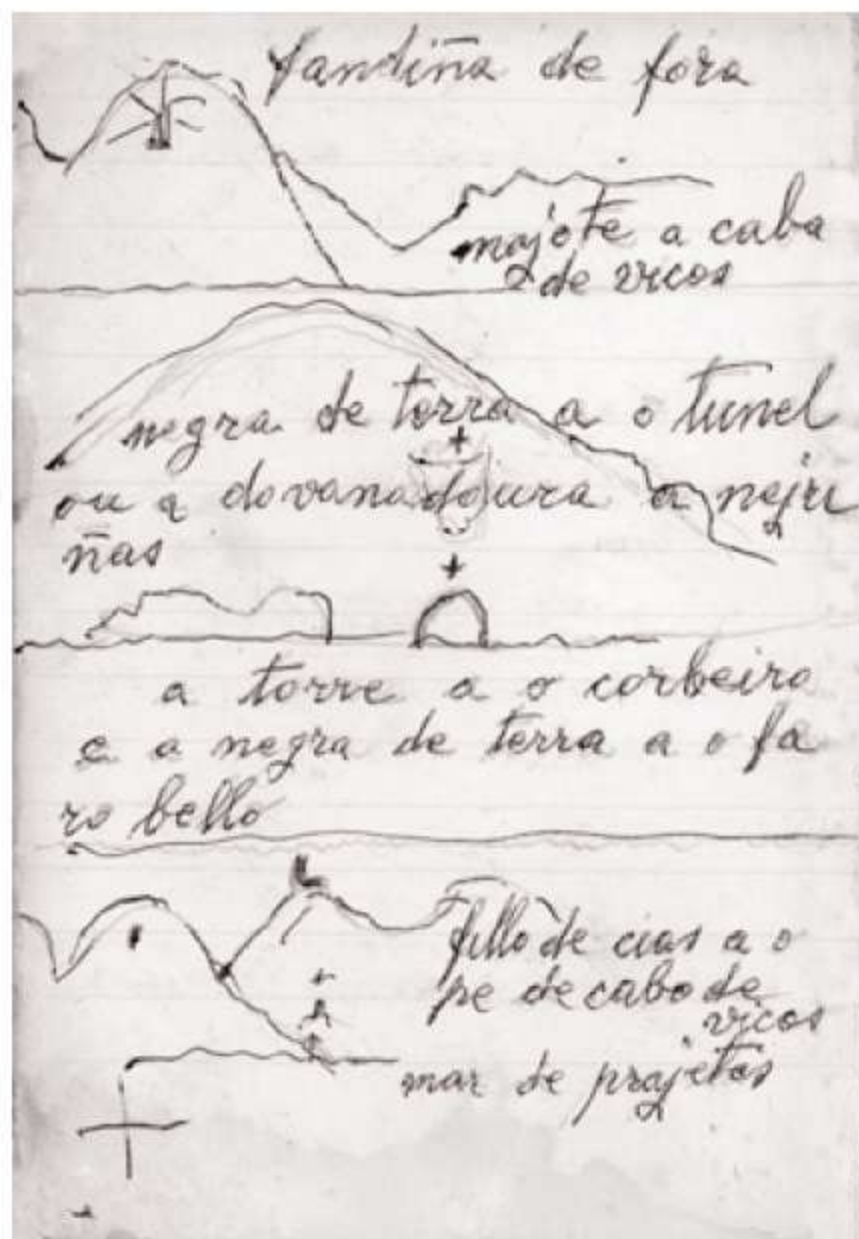 fandiña de fora
majote a caba
de vicos
negra de terra a o tunel
ou a dovanadoura a neju
ñas
a torre a o corbeiro
e a negra de terra a o fa
ro bello
fillo de cias a o
pe de cabo de
vicos
mar de prajetos